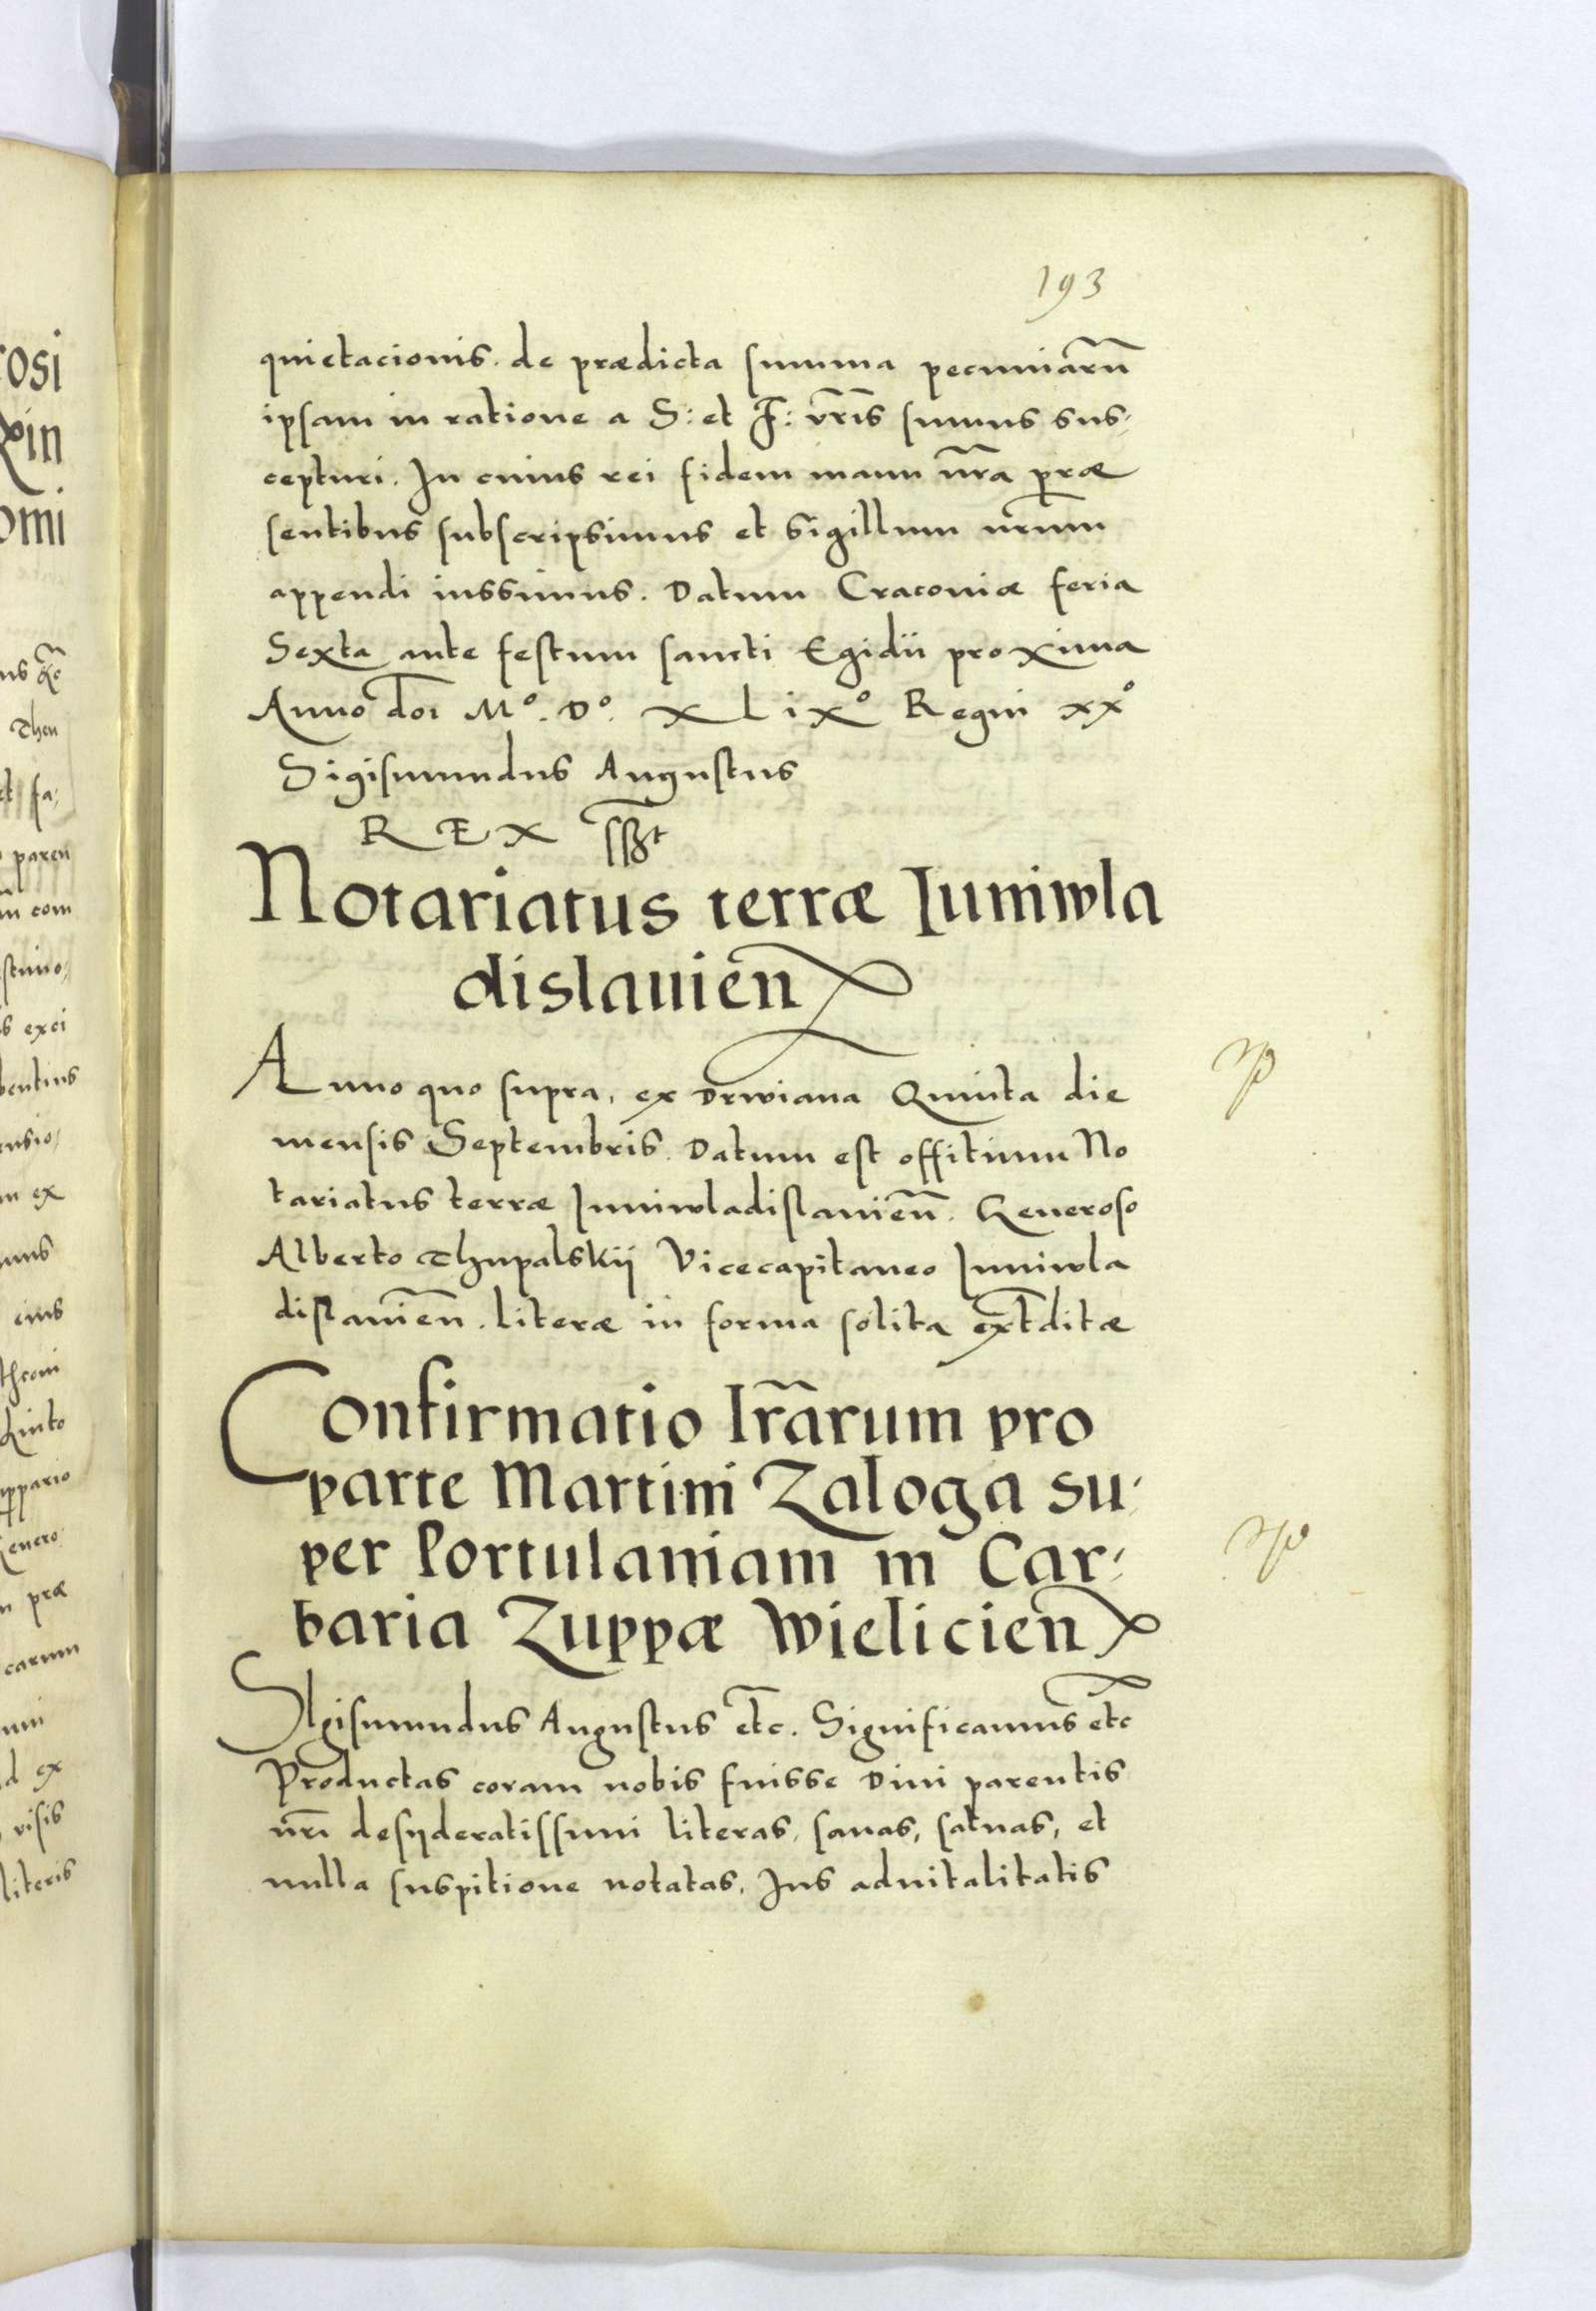 193
quietacionis. de prædicta summa pecuniarũ
ipsam in ratione a S: et F: vr̃is sumus sus-
cepturi. In cuius rei fidem manu nr̃a præ
sentibus subscripsimus et sigillum nr̃um
appendi iussimus. Datum Cracoviæ feria
Sexta ante festum sancti Egidii proxima
Anno dõi Mº. Dº. XLixº Regni xxº
Sigismundus Augustus
REX sszt
Notariatus terræ Iuniwla
dislauieñ
Anno quo supra, ex Drwiana Quinta die
mensis Septembris. Datum est offitium No
tariatus terræ Iuniwladislauieñ. Generoso
Alberto Thupalskij Vicecapitaneo Iuniwla
dislauieñ. literæ in forma solita ext̃ditæ
Confirmatio lr̃arum pro
parte Martini Zaloga su-
per Portulaniam in Car-
baria Zuppæ Wielicieñ
Sigismundus Augustus etc. Significamus etc
Productas coram nobis fuisse Diui parentis
nr̃i desyderatissimi literas, sanas, saluas, et
nulla suspitione notatas, Ius aduitalitatis